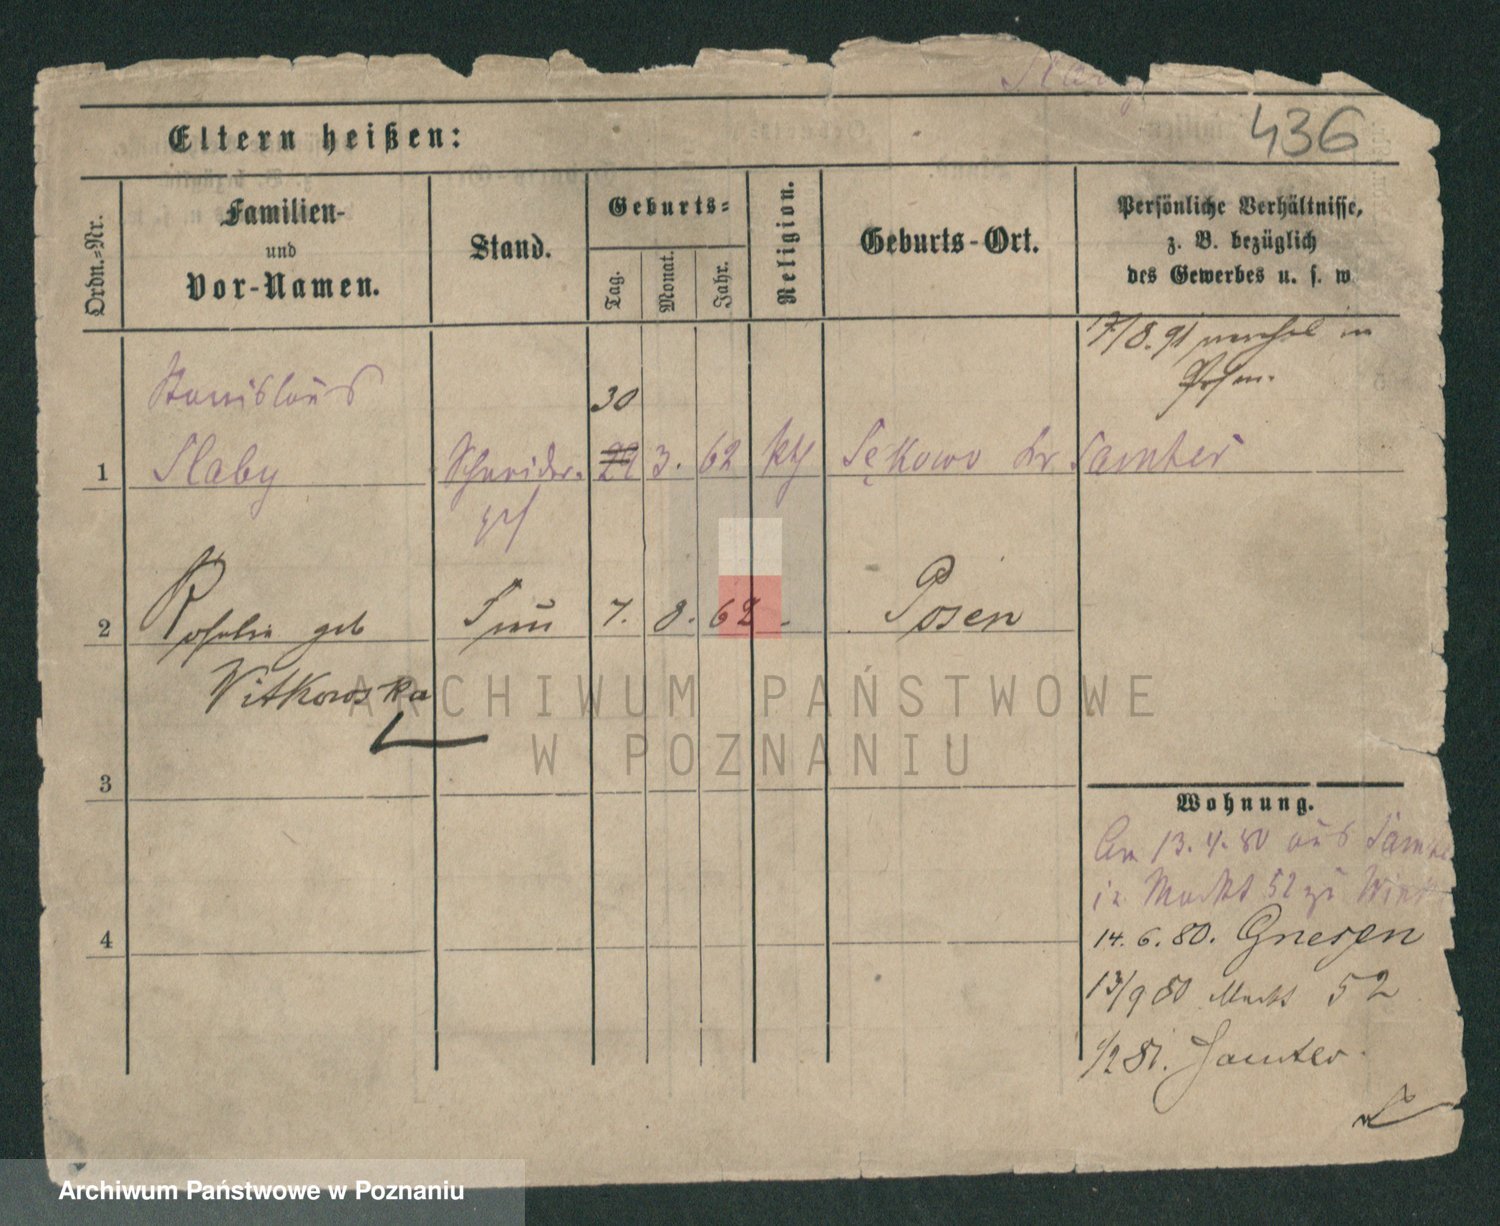 Slaby
436
Eltern heißen:
Ordn.-Nr.
Familien-
und
Vor-Namen.
Stand.
Geburts-
Tag.
Monat.
Jahr.
Religion.
Geburts-Ort.
Persönliche Verhältnisse,
z. B. bezüglich
des Gewerbes u. s. w
17/8.91 in
Posen.
Stanislaus
30
1 Slaby Schneider- 22 3. 62 kth Sękowo Kr Samter
ges
2 Rosalie geb Frau 7. 8. 62 - Posen
Witkowska
ARCHIWUM PAŃSTWOWE
W POZNANIU
3
Wohnung.
Am 13.4.80 aus Samte
in Markt 52 zu
4
14.6.80. Gnesen
13/9 80 Markt 52
1/2 81. Samter
Archiwum Państwowe w Poznaniu